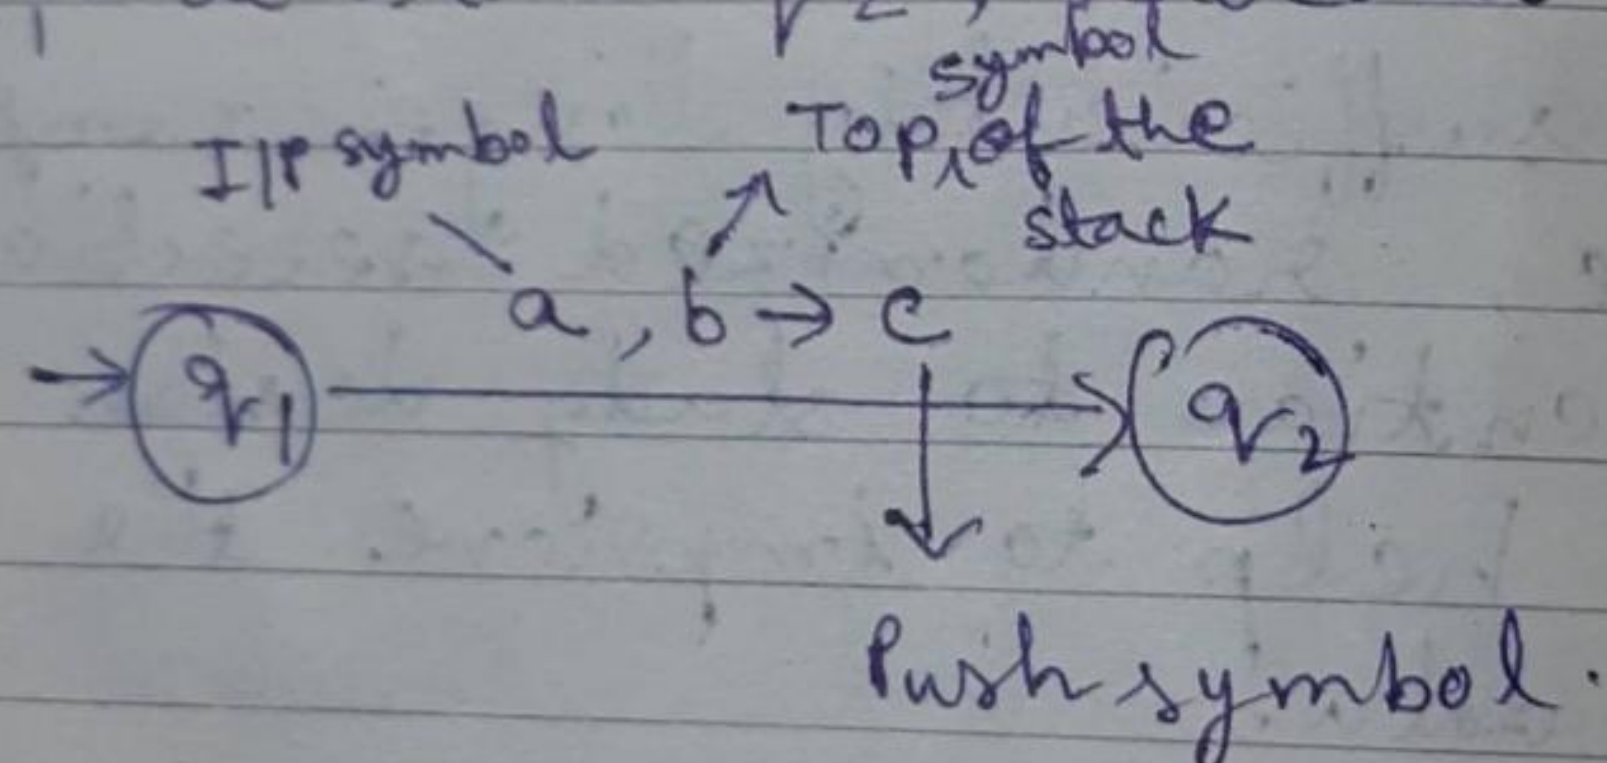 symbol
I/P symbol Top, of the
stack
a, b → c
q1 q2
Push symbol.